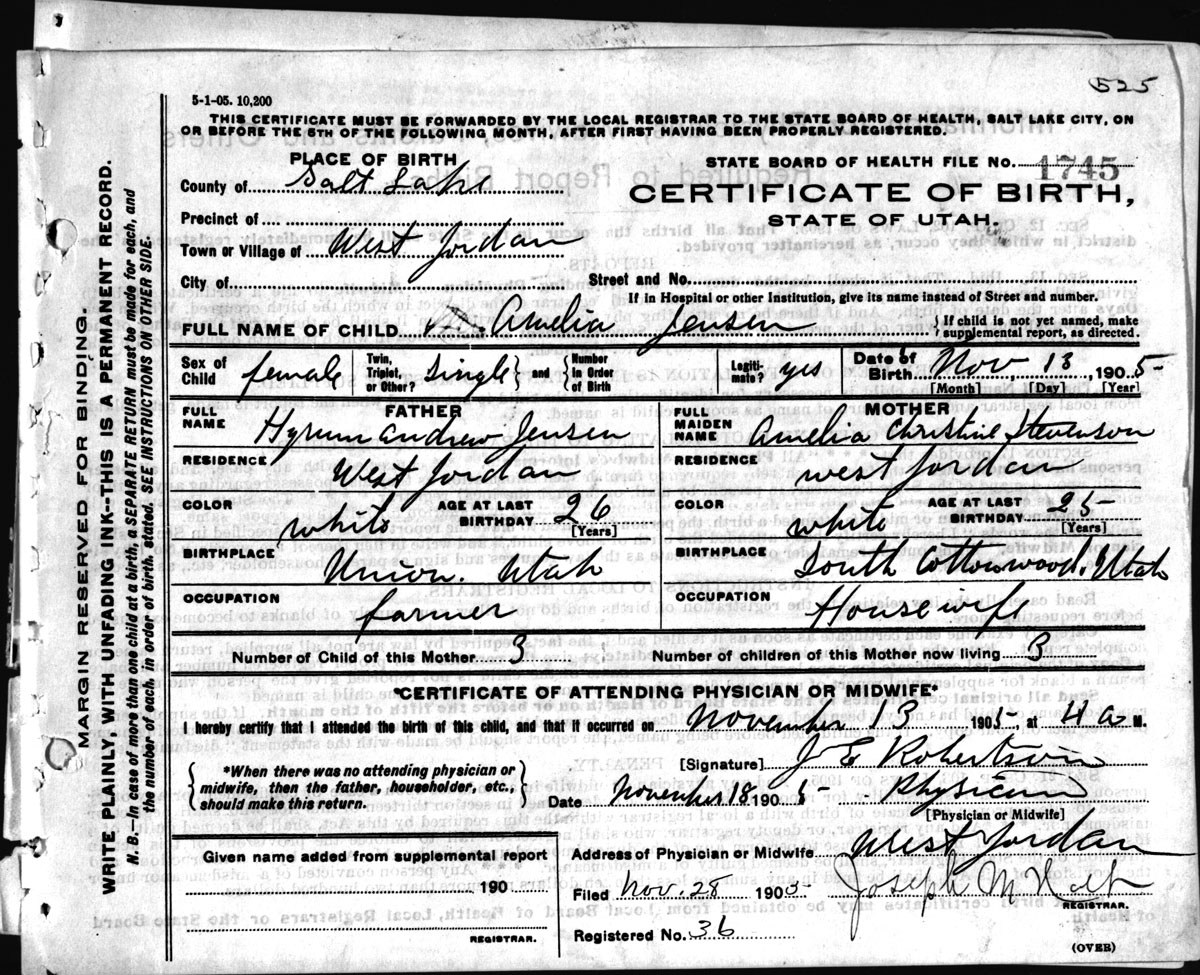 525
5-1-05. 10,200
THIS CERTIFICATE MUST BE FORWARDED BY THE LOCAL REGISTRAR TO THE STATE BOARD OF HEALTH, SALT LAKE CITY, ON
OR BEFORE THE 5TH OF THE FOLLOWING MONTH, AFTER FIRST HAVING BEEN PROPERLY REGISTERED.
PLACE OF BIRTH
County of Salt Lake
Precinct of
Town or Village of West Jordan
City of
STATE BOARD OF HEALTH FILE NO. 1745
CERTIFICATE OF BIRTH,
STATE OF UTAH.
Street and No.
If in Hospital or other Institution, give its name instead of Street and number.
FULL NAME OF CHILD Amelia Jensen { If child is not yet named, make supplemental report, as directed.
Sex of Child female Twin, Triplet, or Other? Single } and { Number in Order of Birth Legiti- mate? yes Date of Birth Nov, 13 1905
[Month] [Day] [Year]
FATHER
FULL NAME Hyrum Andrew Jensen
MOTHER
FULL MAIDEN NAME Amelia Christine Stevenson
RESIDENCE West Jordan
RESIDENCE West Jordan
COLOR white AGE AT LAST BIRTHDAY 26 [Years]
COLOR white AGE AT LAST BIRTHDAY 25 [Years]
BIRTHPLACE Union. Utah
BIRTHPLACE South Cottonwood, Utah
OCCUPATION farmer
OCCUPATION Housewife
Number of Child of this Mother 3 Number of children of this Mother now living 3
*CERTIFICATE OF ATTENDING PHYSICIAN OR MIDWIFE*
I hereby certify that I attended the birth of this child, and that it occurred on November 13 1905, at 4 a M.
{ *When there was no attending physician or
midwife, then the father, householder, etc.,
should make this return. }
[Signature] J E Robertson
Date November 18 1905 Physician
[Physician or Midwife]
Given name added from supplemental report
190
REGISTRAR.
Address of Physician or Midwife West Jordan
Filed Nov. 28 1905 Joseph M Holt
REGISTRAR.
Registered No. 36
(OVER)
MARGIN RESERVED FOR BINDING.
WRITE PLAINLY, WITH UNFADING INK--THIS IS A PERMANENT RECORD.
N. B.--In case of more than one child at a birth, a SEPARATE RETURN must be made for each, and
the number of each, in order of birth, stated. SEE INSTRUCTIONS ON OTHER SIDE.